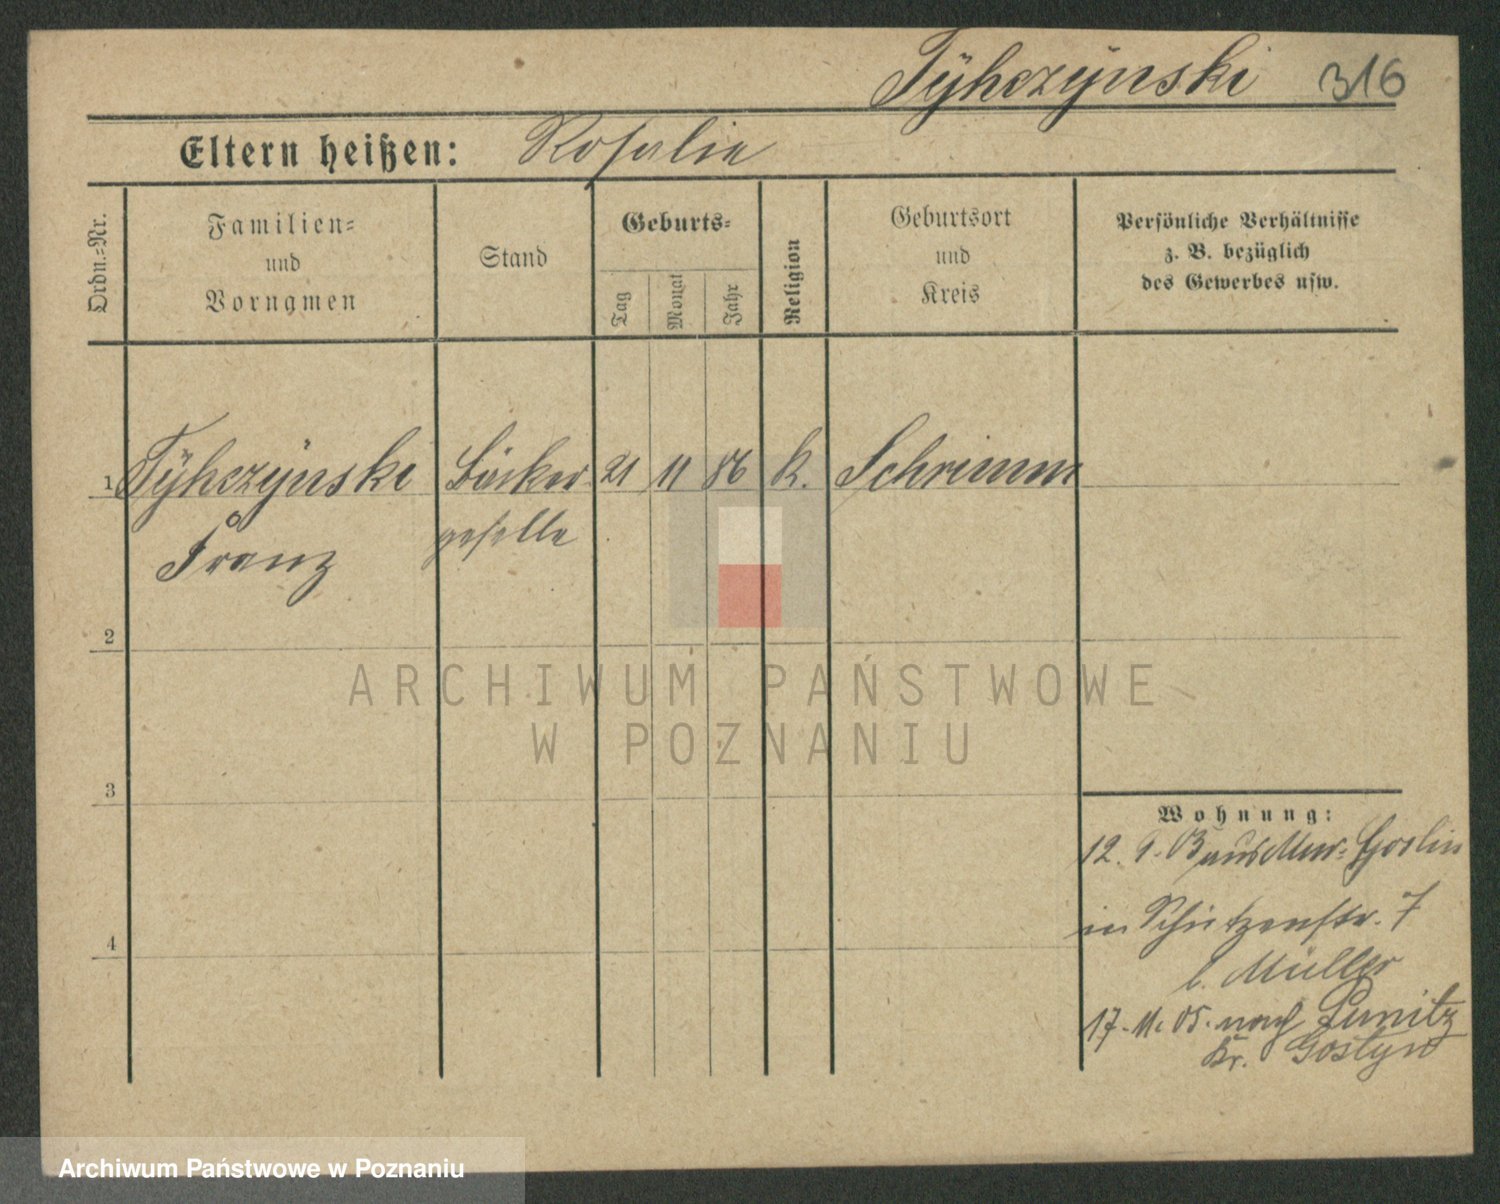 Tÿhczÿnski 316
Eltern heißen: Rosalie
Ordn.-Nr.
Familien-
und
Vornamen
Stand
Geburts-
Tag
Monat
Jahr
Religion
Geburtsort
und
Kreis
Persönliche Verhältnisse
z. B. bezüglich
des Gewerbes usw.
1 Tÿhczÿnski Bäcker 21 11 86 K. Schrimm
geselle
Franz
2
3
4
Wohnung:
12. 9. 05 aus Mur. Goslin
in Schützenstr. 7
b. Müller
17. 11. 05. nach Punitz
Kr. Gostyn
ARCHIWUM PAŃSTWOWE
W POZNANIU
Archiwum Państwowe w Poznaniu